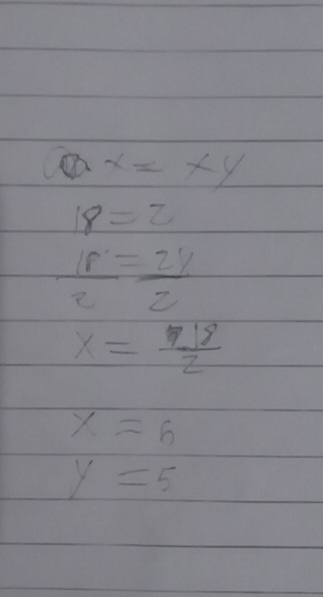 x = xy
18 = 2
18 = 2y
2 2
x = 18
2
x = 6
y = 5